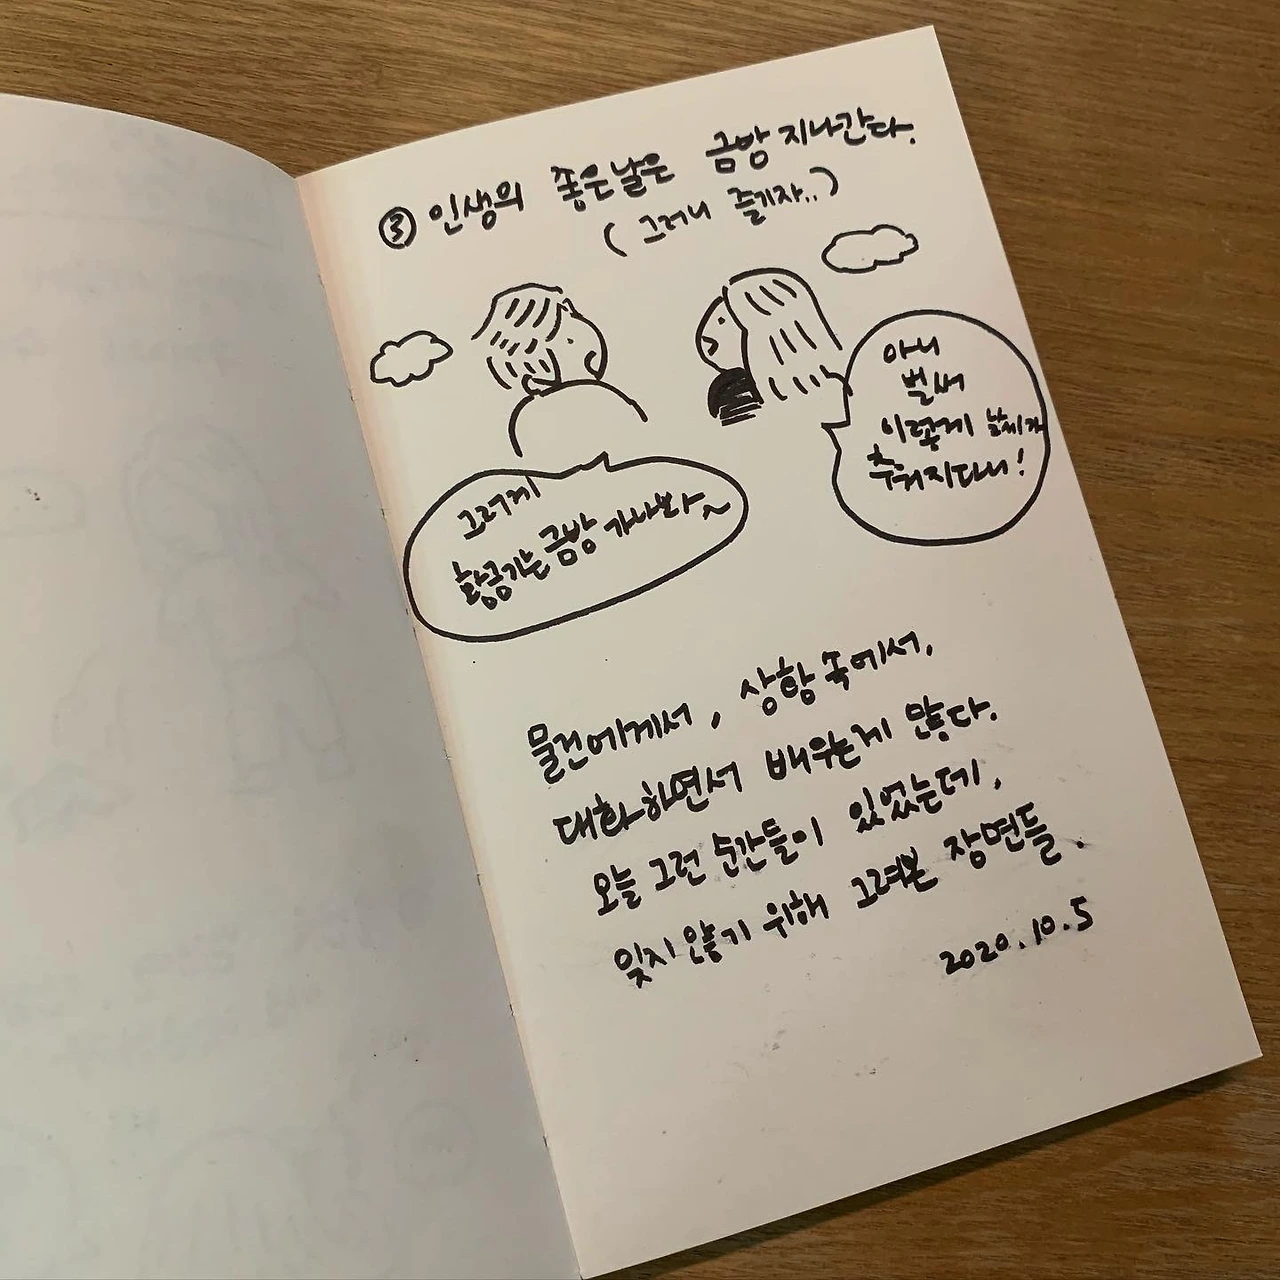 ③ 인생의 좋은날은 금방 지나간다.
(그러니 즐기자..)
아니
벌써
이렇게 날씨가
추워지다니!
그러게
황금기는 금방 가나봐~
물건에게서, 상황 속에서,
대화하면서 배우는게 많다.
오늘 그런 순간들이 있었는데,
잊지 않기 위해 그려본 장면들.
2020.10.5